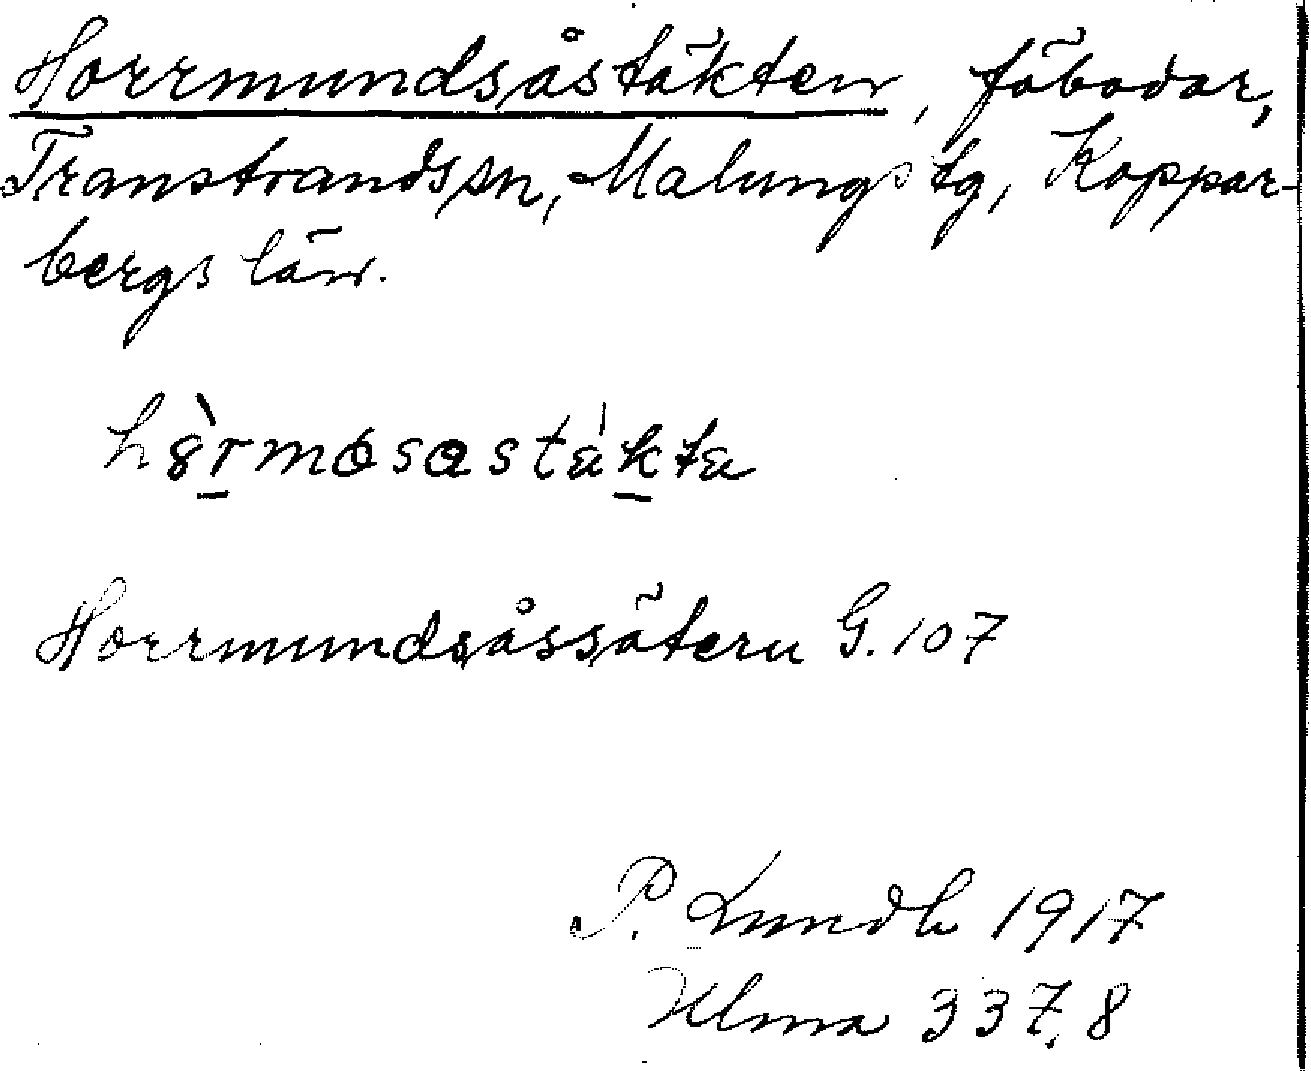 Horrmundsåstäkten, fäbodar,
Transtrands sn, Malungs tg, Koppar-
bergs län.
Horrmundsåssätern G. 107
P. Lundh 1917
Ulma 337,8